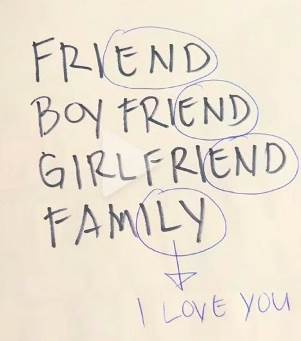 FRIEND
BOY FRIEND
GIRLFRIEND
FAMILY
I LOVE YOU